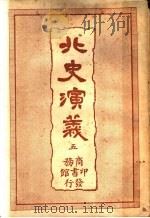 北史演義
五
商務印書館發行